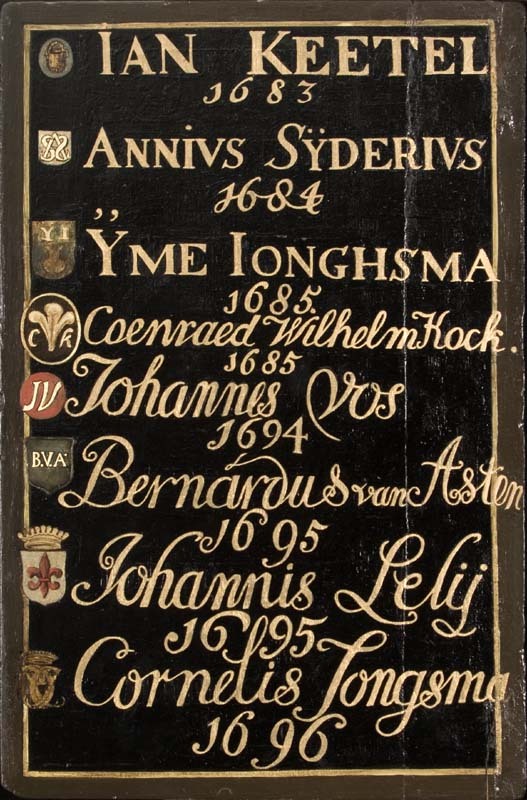 IAN KEETEL
1683
ANNIVS SŸDERIVS
1684
Y I
ŸME IONGHSMA
1685
C K
Coenraed Wilhelm Kock.
1685
JV
Johannes Vos
1694
B.V.A
Bernardus van Asten
1695
Johannis Lelij
1695
Cornelis Jongsma
1696